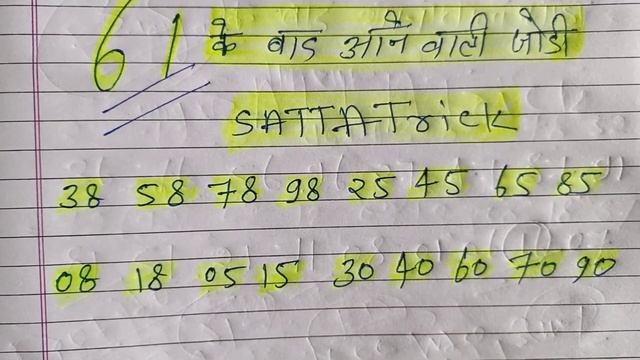 61 के बाद आने वाली जोडी
SATTA Trick
38 58 78 98 25 45 65 85
08 18 05 15 30 40 60 70 90